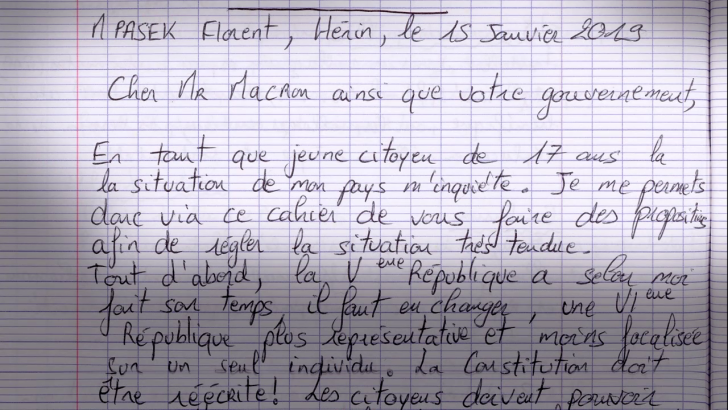 M PASEK Florent, Hénin, le 15 Janvier 2019
Cher MR Macron ainsi que votre gouvernement,
En tant que jeune citoyen de 17 ans la
la situation de mon pays m'inquiète. Je me permets
donc via ce cahier de vous faire des propositions
afin de régler la situation très tendue.
Tout d'abord, la Veme République a selon moi
fait son temps, il faut en changer, une VIeme
République plus représentative et moins focalisée
sur un seul individu. La Constitution doit
être réécrite! Les citoyens doivent pouvoir